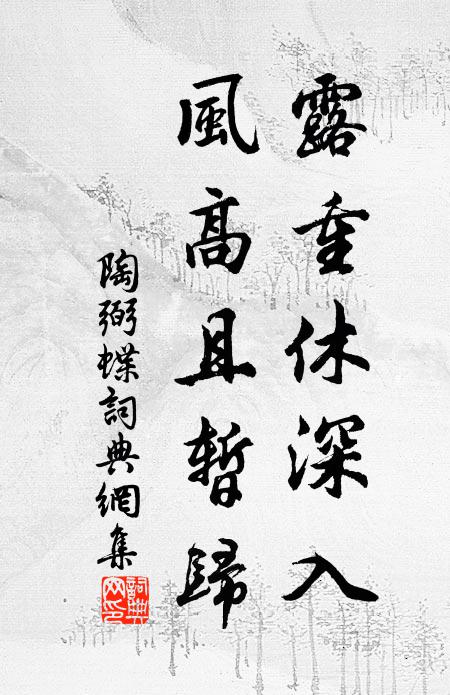 露重休深入
風高且暫歸
陶弼蝶詞典網集
詞典网印